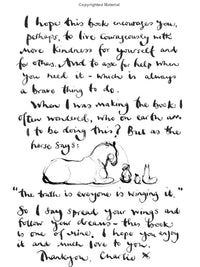 Copyrighted Material
I hope this book encourages you,
perhaps, to live courageously with
more kindness for yourself and
for others. And to ask for help when
you need it - which is always
a brave thing to do.
When I was making the book I
often wondered, who on earth am
I to be doing this? But as the
horse says:
"the truth is everyone is winging it."
So I say spread your wings and
follow your dreams - this book
is one of mine. I hope you enjoy
it and much love to you.
Thankyou. Charlie x